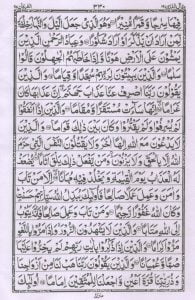 ٣٣٠
فِيْهَا سِرٰجًا وَّقَمَرًا مُّنِيْرًا وَهُوَ الَّذِيْ جَعَلَ الَّيْلَ وَالنَّهَارَ خِلْفَةً
لِّمَنْ اَرَادَ اَنْ يَّذَّكَّرَ اَوْ اَرَادَ شُكُوْرًا وَعِبَادُ الرَّحْمٰنِ الَّذِيْنَ
يَمْشُوْنَ عَلَى الْاَرْضِ هَوْنًا وَّاِذَا خَاطَبَهُمُ الْجٰهِلُوْنَ قَالُوْا
سَلٰمًا وَالَّذِيْنَ يَبِيْتُوْنَ لِرَبِّهِمْ سُجَّدًا وَّقِيَامًا وَالَّذِيْنَ
يَقُوْلُوْنَ رَبَّنَا اصْرِفْ عَنَّا عَذَابَ جَهَنَّمَ اِنَّ عَذَابَهَا كَانَ
غَرَامًا اِنَّهَا سَآءَتْ مُسْتَقَرًّا وَّمُقَامًا وَالَّذِيْنَ اِذَآ اَنْفَقُوْا
لَمْ يُسْرِفُوْا وَلَمْ يَقْتُرُوْا وَكَانَ بَيْنَ ذٰلِكَ قَوَامًا وَالَّذِيْنَ
لَا يَدْعُوْنَ مَعَ اللّٰهِ اِلٰهًا اٰخَرَ وَلَا يَقْتُلُوْنَ النَّفْسَ الَّتِيْ حَرَّمَ
اللّٰهُ اِلَّا بِالْحَقِّ وَلَا يَزْنُوْنَ وَمَنْ يَّفْعَلْ ذٰلِكَ يَلْقَ اَثَامًا يُّضٰعَفْ
لَهُ الْعَذَابُ يَوْمَ الْقِيٰمَةِ وَيَخْلُدْ فِيْهٖ مُهَانًا اِلَّا مَنْ تَابَ
وَاٰمَنَ وَعَمِلَ عَمَلًا صَالِحًا فَاُولٰٓئِكَ يُبَدِّلُ اللّٰهُ سَيِّاٰتِهِمْ حَسَنٰتٍ
وَكَانَ اللّٰهُ غَفُوْرًا رَّحِيْمًا وَمَنْ تَابَ وَعَمِلَ صَالِحًا فَاِنَّهٗ يَتُوْبُ
اِلَى اللّٰهِ مَتَابًا وَالَّذِيْنَ لَا يَشْهَدُوْنَ الزُّوْرَ وَاِذَا مَرُّوْا بِاللَّغْوِ
مَرُّوْا كِرَامًا وَالَّذِيْنَ اِذَا ذُكِّرُوْا بِاٰيٰتِ رَبِّهِمْ لَمْ يَخِرُّوْا عَلَيْهَا
صُمًّا وَّعُمْيَانًا وَالَّذِيْنَ يَقُوْلُوْنَ رَبَّنَا هَبْ لَنَا مِنْ اَزْوَاجِنَا
وَذُرِّيّٰتِنَا قُرَّةَ اَعْيُنٍ وَّاجْعَلْنَا لِلْمُتَّقِيْنَ اِمَامًا اُولٰٓئِكَ